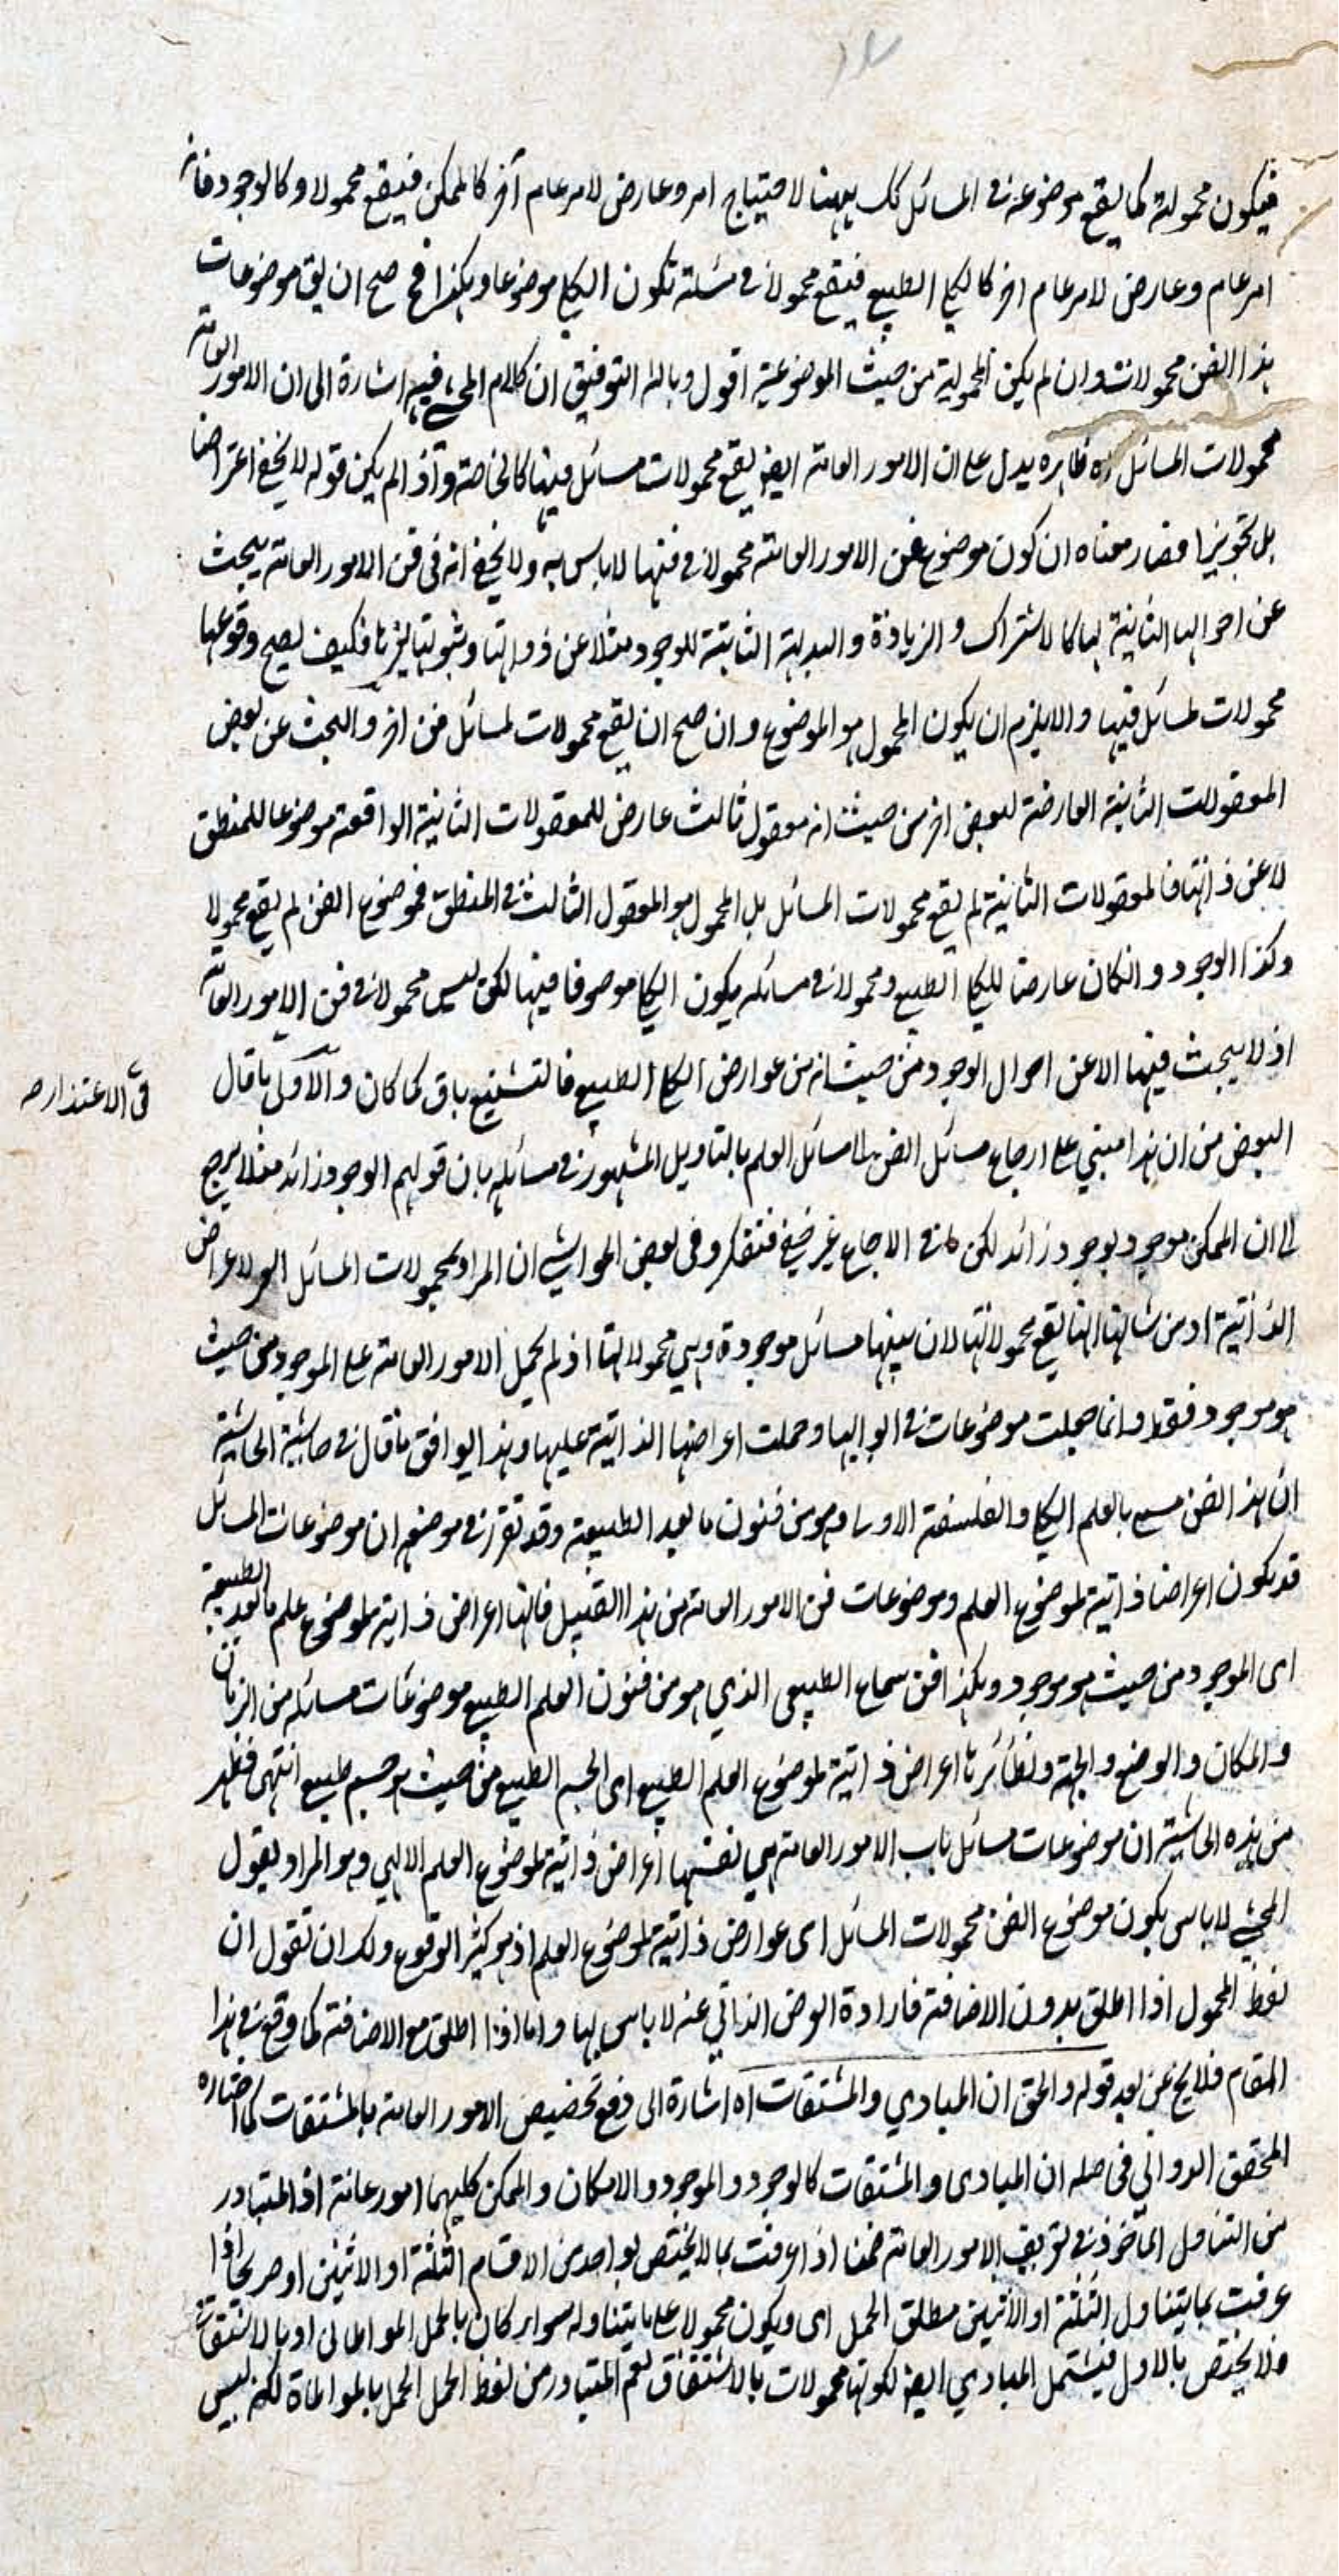 فيكون محمولة كما يقع موضوعه في المسائل كك ههنا لاحتياج امر وعارض لامر عام آخر كالممكن فيقع محمولا وكالوجود فانه
امر عام وعارض لامر عام اخر كالكلي الطبيعي فيقع محمولا في مسئلة تكون الكلي موضوعا وهكذا فح صح ان يق موضوعات
هذا الفن محمولات وان لم يكن المحمولية من حيث الموضوعية اقول وبالله التوفيق ان كلام المحشي فيه اشارة الى ان الامور العامة
محمولات المسائل اه ظاهره يدل على ان الامور العامة ايضا يقع محمولات مسائل فيها كالخاصة واذ لم يكن قوله لا يخفى اعتراضا
بل تجويزا فصار معناه ان كون موضوع فن الامور العامة محمولا في فنها لا باس به ولا يخفى انه في فن الامور العامة يبحث
عن احوالها الثابتة لها كالاشتراك والزيادة والبديهة الثابتة للوجود مثلا عن ذواتها وثبوتها لغيرها فكيف يصح وقوعها
محمولات لمسائل فيها والا يلزم ان يكون المحمول هو الموضوع وان صح ان يقع محمولات لمسائل فن اخر والبحث عن بعض
المعقولات الثانية العارضة لبعض اخر من حيث انه معقول ثالث عارض للمعقولات الثانية الواقعة موضوعا للمنطق
لا عن ذاتها فالمعقولات الثانية لم يقع محمولات المسائل بل المحمول هو المعقول الثالث في المنطق فموضوع الفن لم يقع محمولا
وكذا الوجود وانكان عارضا للكلي الطبيعي ومحمولا في مسائله يكون الكلي موصوفا فيها لكن ليس محمولا في فن الامور العامة
اذ لا يبحث فيها الا عن احوال الوجود من حيث انه من عوارض الكلي الطبيعي فالتشنيع باق كما كان والاولى ما قال
في الاعتذار صه
البعض من ان هذا مبني على ارجاع مسائل الفن الى مسائل العلم بالتاويل المشهور في مسائله بان قولهم الوجود زائد مثلا يرجع
الى ان الممكن موجود بوجود زائد لكن ما في الارجاع غير خفي فتفكر وفي بعض الحواشي ان المراد بمحمولات المسائل الاعراض
الذاتية او من شانها انها يقع محمولاتها لان بينها مسائل موجودة وهي محمولاتها اذ لم يحمل الامور العامة على الموجود من حيث
هو موجود فقط وانما جعلت موضوعات في ابوابها وحملت اعراضها الذاتية عليها وهذا يوافق ما قال في حاشية الحاشية
ان هذا الفن مسمى بالعلم الكلي والفلسفة الاولى وهو من فنون ما بعد الطبيعة وقد تقرر في موضعه ان موضوعات المسائل
قد يكون اعراضا ذاتية لموضوع العلم وموضوعات فن الامور العامة من هذا القبيل فانها اعراض ذاتية لموضوع علم ما بعد الطبيعة
اى الموجود من حيث هو موجود وهكذا فن سماع الطبيعي الذي هو من فنون العلم الطبيعي موضوعات مسائله من الزمان
والمكان والوضع والجهة ونظائرها اعراض ذاتية لموضوع العلم الطبيعي اى الجسم الطبيعي من حيث هو جسم طبيعي انتهى فظهر
من هذه الحاشية ان موضوعات مسائل باب الامور العامة هي نفسها اعراض ذاتية لموضوع العلم الالهي وهو المراد بقول
المحشي لا باس بكون موضوع الفن محمولات المسائل اى عوارض ذاتية لموضوع العلم اذ هو كثير الوقوع ولك ان تقول ان
لفظ المحمول اذا اطلق بدون الاضافة فارادة العرض الذاتي عنه لا باس بها واما اذا اطلق مع الاضافة كما وقع في هذا
المقام فلا يخ عن بعد قوله والحق ان المبادي والمشتقات اه اشارة الى دفع تخصيص الامور العامة بالمشتقات كما اختاره
المحقق الدواني في حاصله ان المبادى والمشتقات كالوجود والموجود والامكان والممكن كليهما امور عامة اذ المتبادر
من التناول الماخوذ في تعريف الامور العامة ضمنا اذا عرفت بما لا يختص بواحدى الاقسام الثلثة او الاثنين او صريحا اذا
عرفت بما يتناول الثلثة او الاثنين مطلق الحمل اى ويكون محمولا على ما يتناوله سواء كان بالحمل المواطاتى او بالاشتقاق
فلا يختص بالاول فيشتمل المبادي ايضا لكونها محمولات بالاشتقاق نعم المتبادر من لفظ الحمل الحمل بالمواطاة لكنه ليس